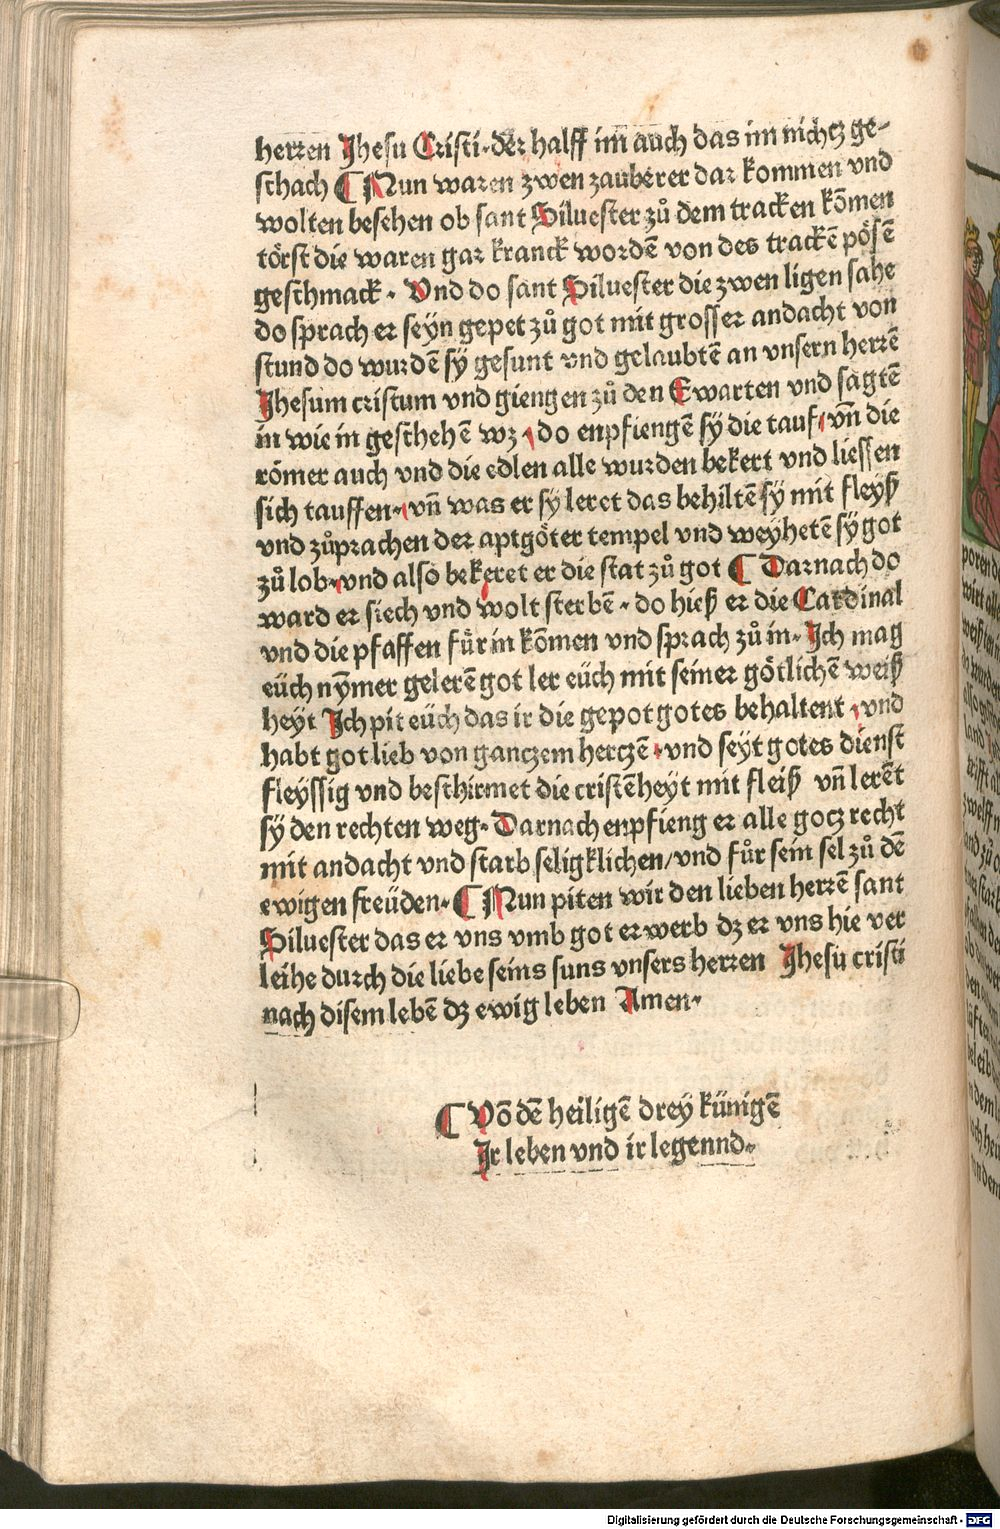 herren Jhesu Cristi·der halff im̄ auch das im nichcz ge-
schach ¶ Nun waren zwen zauberer dar kommen vnd
wolten besehen ob sant Siluester zů dem tracken kōmen
törst die waren gar kranck wordē von des trackē pösē
geschmack· Vnd do sant Siluester die zwen ligen sahe
do sprach er seyn gepet zů got mit grosser andacht von
stund do wurdē sy gesunt vnd gelaubtē an vnsern herrē
Jhesum cristum vnd giengen zů den Ewarten vnd sagtē
in wie in geschehē wz·do enpfiengē sy die tauf·vn̄ die
römer auch vnd die edlen alle wurden bekert vnd liessen
sich tauffen·vn̄ was er sy leret das behiltē sy mit fleyß
vnd zůprachen der aptgöter tempel vnd weyhetē sy got
zů lob·vnd also bekeret er die stat zů got ¶ Darnach do
ward er siech vnd wolt sterbē·do hieß er die Cardinal
vnd die pfaffen für in kōmen vnd sprach zů in·Ich mag
eüch nȳmer gelerē got ler eüch mit seiner götlichē weiß
heyt Ich pit eüch das ir die gepot gotes behaltent·vnd
habt got lieb von ganczem herczē·vnd seyt gotes dienst
fleyssig vnd beschirmet die cristēheyt mit fleiß vn̄ lerēt
sy den rechten weg·Darnach enpfieng er alle gocz recht
mit andacht vnd starb seligklichen/vnd fůr sein sel zů dē
ewigen freüden·¶ Nun piten wir den lieben herrē sant
Siluester das er vns vmb got erwerb dz er vns hie ver
leihe durch die liebe seins suns vnsers herren Jhesu cristi
nach disem lebē dz ewig leben Amen·
¶ Vō dē heiligē drey künigē
Ir leben vnd ir legennd·
Digitalisierung gefördert durch die Deutsche Forschungsgemeinschaft - DFG